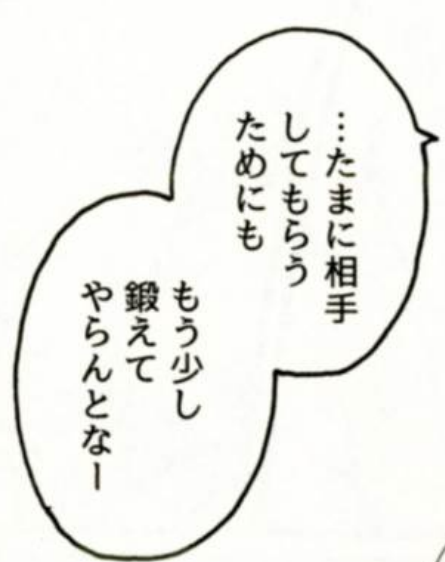 …たまに相手
してもらう
ためにも
もう少し
鍛えて
やらんとなー